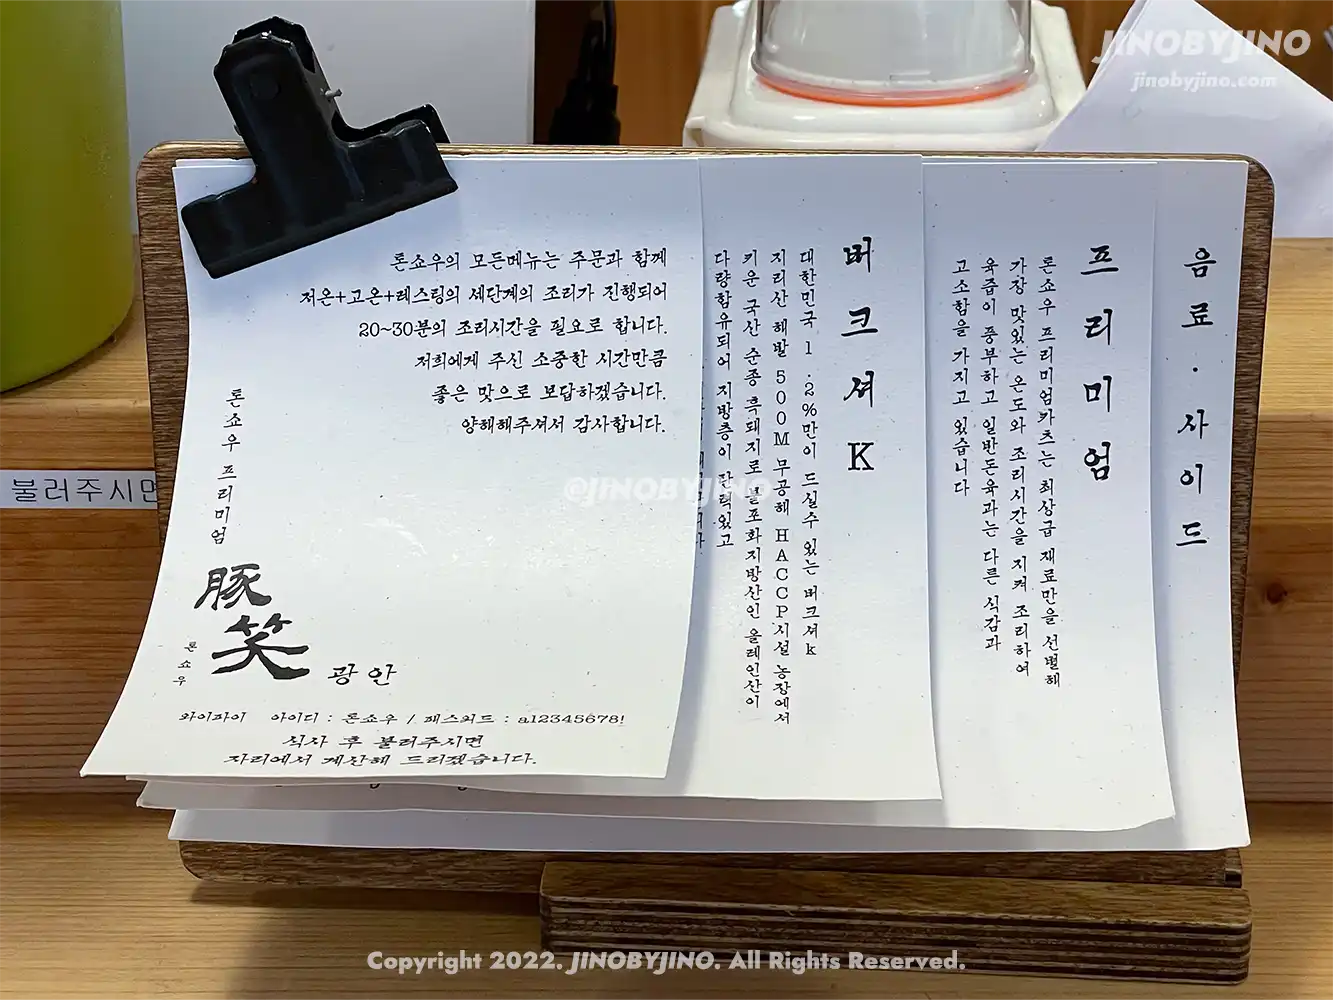 JINOBYJINO
jinobyjino.com
톤쇼우의 모든메뉴는 주문과 함께
저온+고온+레스팅의 세단계의 조리가 진행되어
20~30분의 조리시간을 필요로 합니다.
저희에게 주신 소중한 시간만큼
좋은 맛으로 보답하겠습니다.
양해해주셔서 감사합니다.
톤쇼우 프리미엄
豚笑
톤쇼우
광안
와이파이 아이디 : 톤쇼우 / 패스워드 : a12345678!
식사 후 불러주시면
자리에서 계산해 드리겠습니다.
버크셔K
대한민국 1.2%만이 드실수 있는 버크셔k
지리산 해발 500M 무공해 HACCP시설 농장에서
키운 국산 순종 흑돼지로 불포화지방산인 올레인산이
다량함유되어 지방층이 단력있고
프리미엄
톤쇼우 프리미엄카츠는 최상급 재료만을 선별해
가장 맛있는 온도와 조리시간을 지켜 조리하여
육즙이 풍부하고 일반돈육과는 다른 식감과
고소함을 가지고 있습니다
음료·사이드
불러주시면
©JINOBYJINO
Copyright 2022. JINOBYJINO. All Rights Reserved.